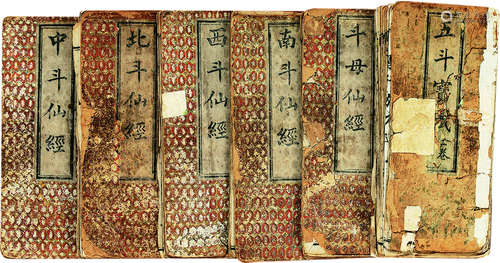 中斗仙經
北斗仙經
西斗仙經
南斗仙經
斗母仙經
五斗寶懺